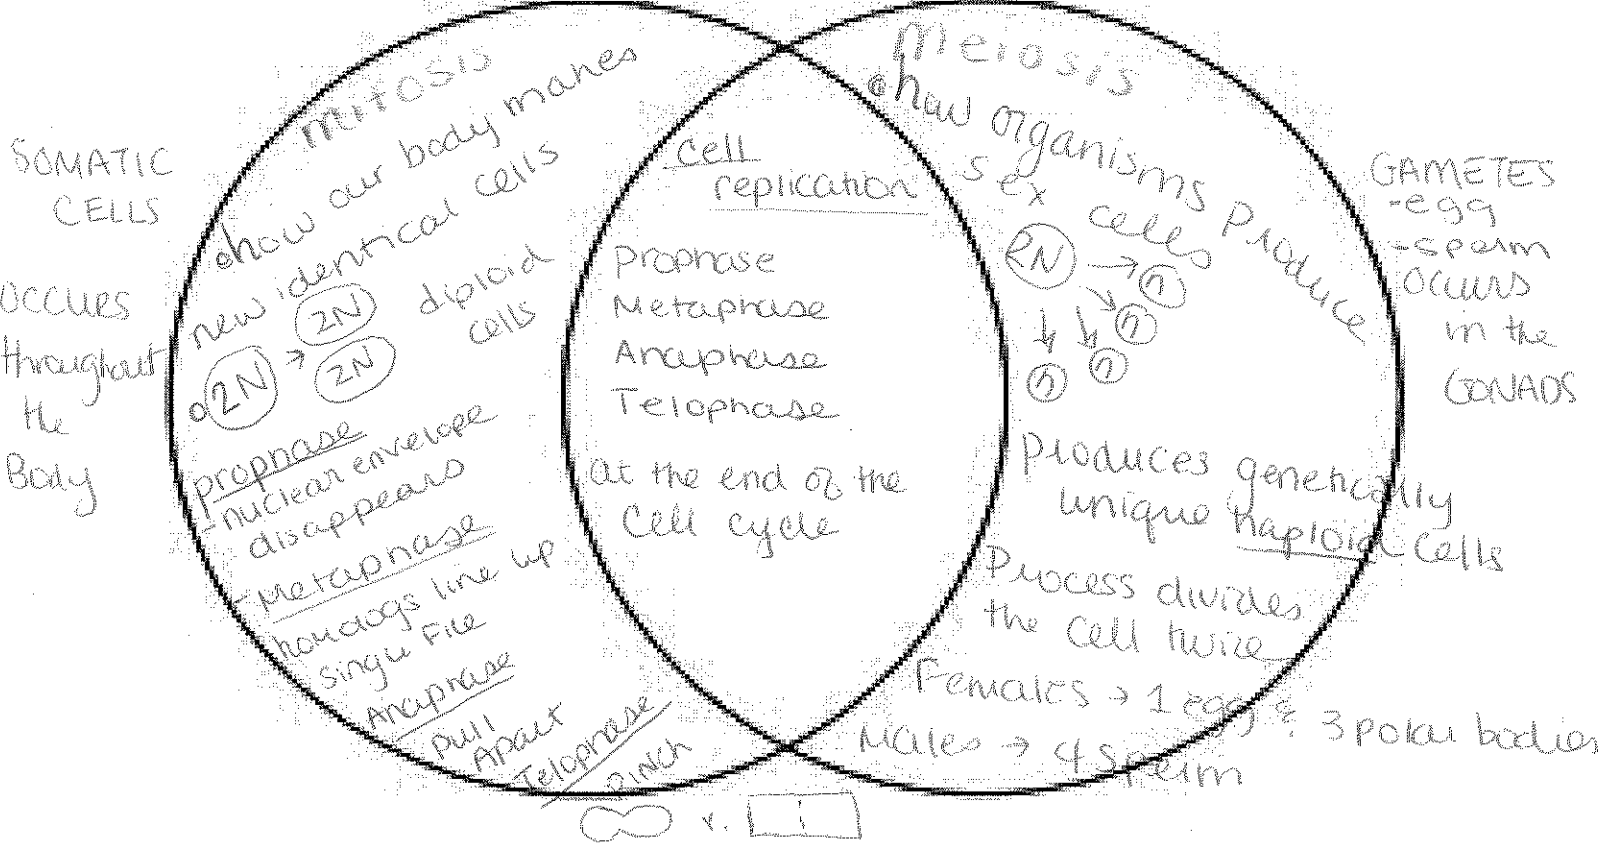 SOMATIC
CELLS
OCCURS
throughout
the
Body
mitosis
how our body makes
new identical cells
2N → 2N 2N
diploid
cells
prophase
- nuclear envelope
disappears
- Metaphase
homologs line up
single File
Anaphase
pull
Apart
Telophase
pinch
v.
cell
replication
Prophase
Metaphase
Anaphase
Telophase
at the end of the
cell cycle
Meiosis
how organisms produce
sex cells
2N → n n n n
produces genetically
unique haploid cells
Process divides
the cell twice
Females → 1 egg & 3 polar bodies
Males → 4 sperm
GAMETES
- egg
- sperm
OCCURS
in the
GONADS